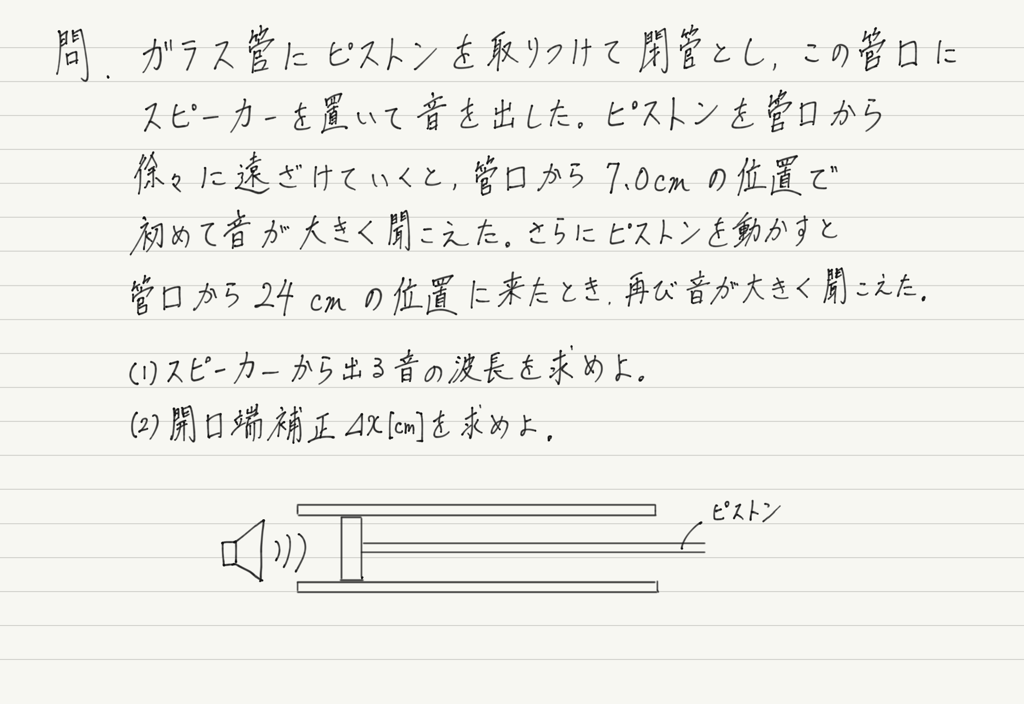 問. ガラス管にピストンを取りつけて閉管とし, この管口に
スピーカーを置いて音を出した。ピストンを管口から
徐々に遠ざけていくと, 管口から 7.0cm の位置で
初めて音が大きく聞こえた。さらにピストンを動かすと
管口から 24 cm の位置に来たとき, 再び音が大きく聞こえた.
(1) スピーカーから出る音の波長を求めよ。
(2) 開口端補正 Δx[cm]を求めよ.
ピストン